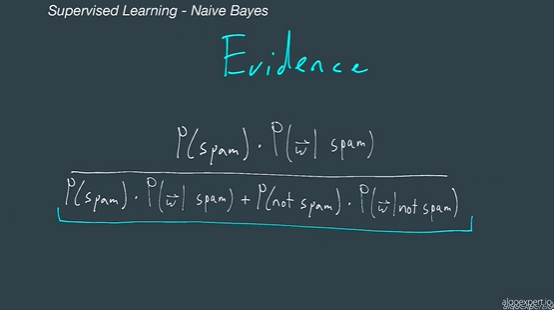 Supervised Learning - Naive Bayes
Evidence
P(spam) · P(w⃗| spam)
P(spam) · P(w⃗| spam) + P(not spam) · P(w⃗|not spam)
algoexpert.io
algoexpert.io